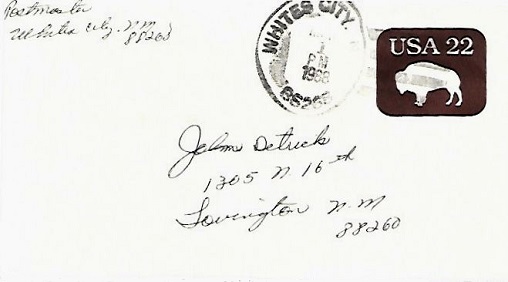 Postmaster
Whites City, N.M.
88268
WHITES CITY,
1
PM
1988
USA 22
John Detrick
1305 N 16th
Lovington N.M
88260